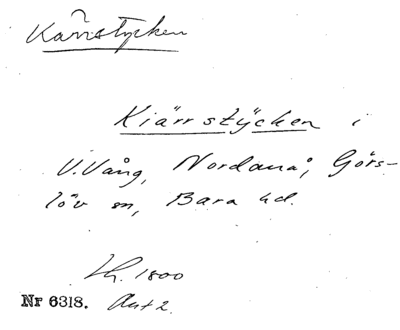 Kärrstycken
Kiärr stÿcken i
V. Vång, Nordanå, Görs-
löv sn, Bara hd.
Lh. 1800
Nr 6318. Akt 2.